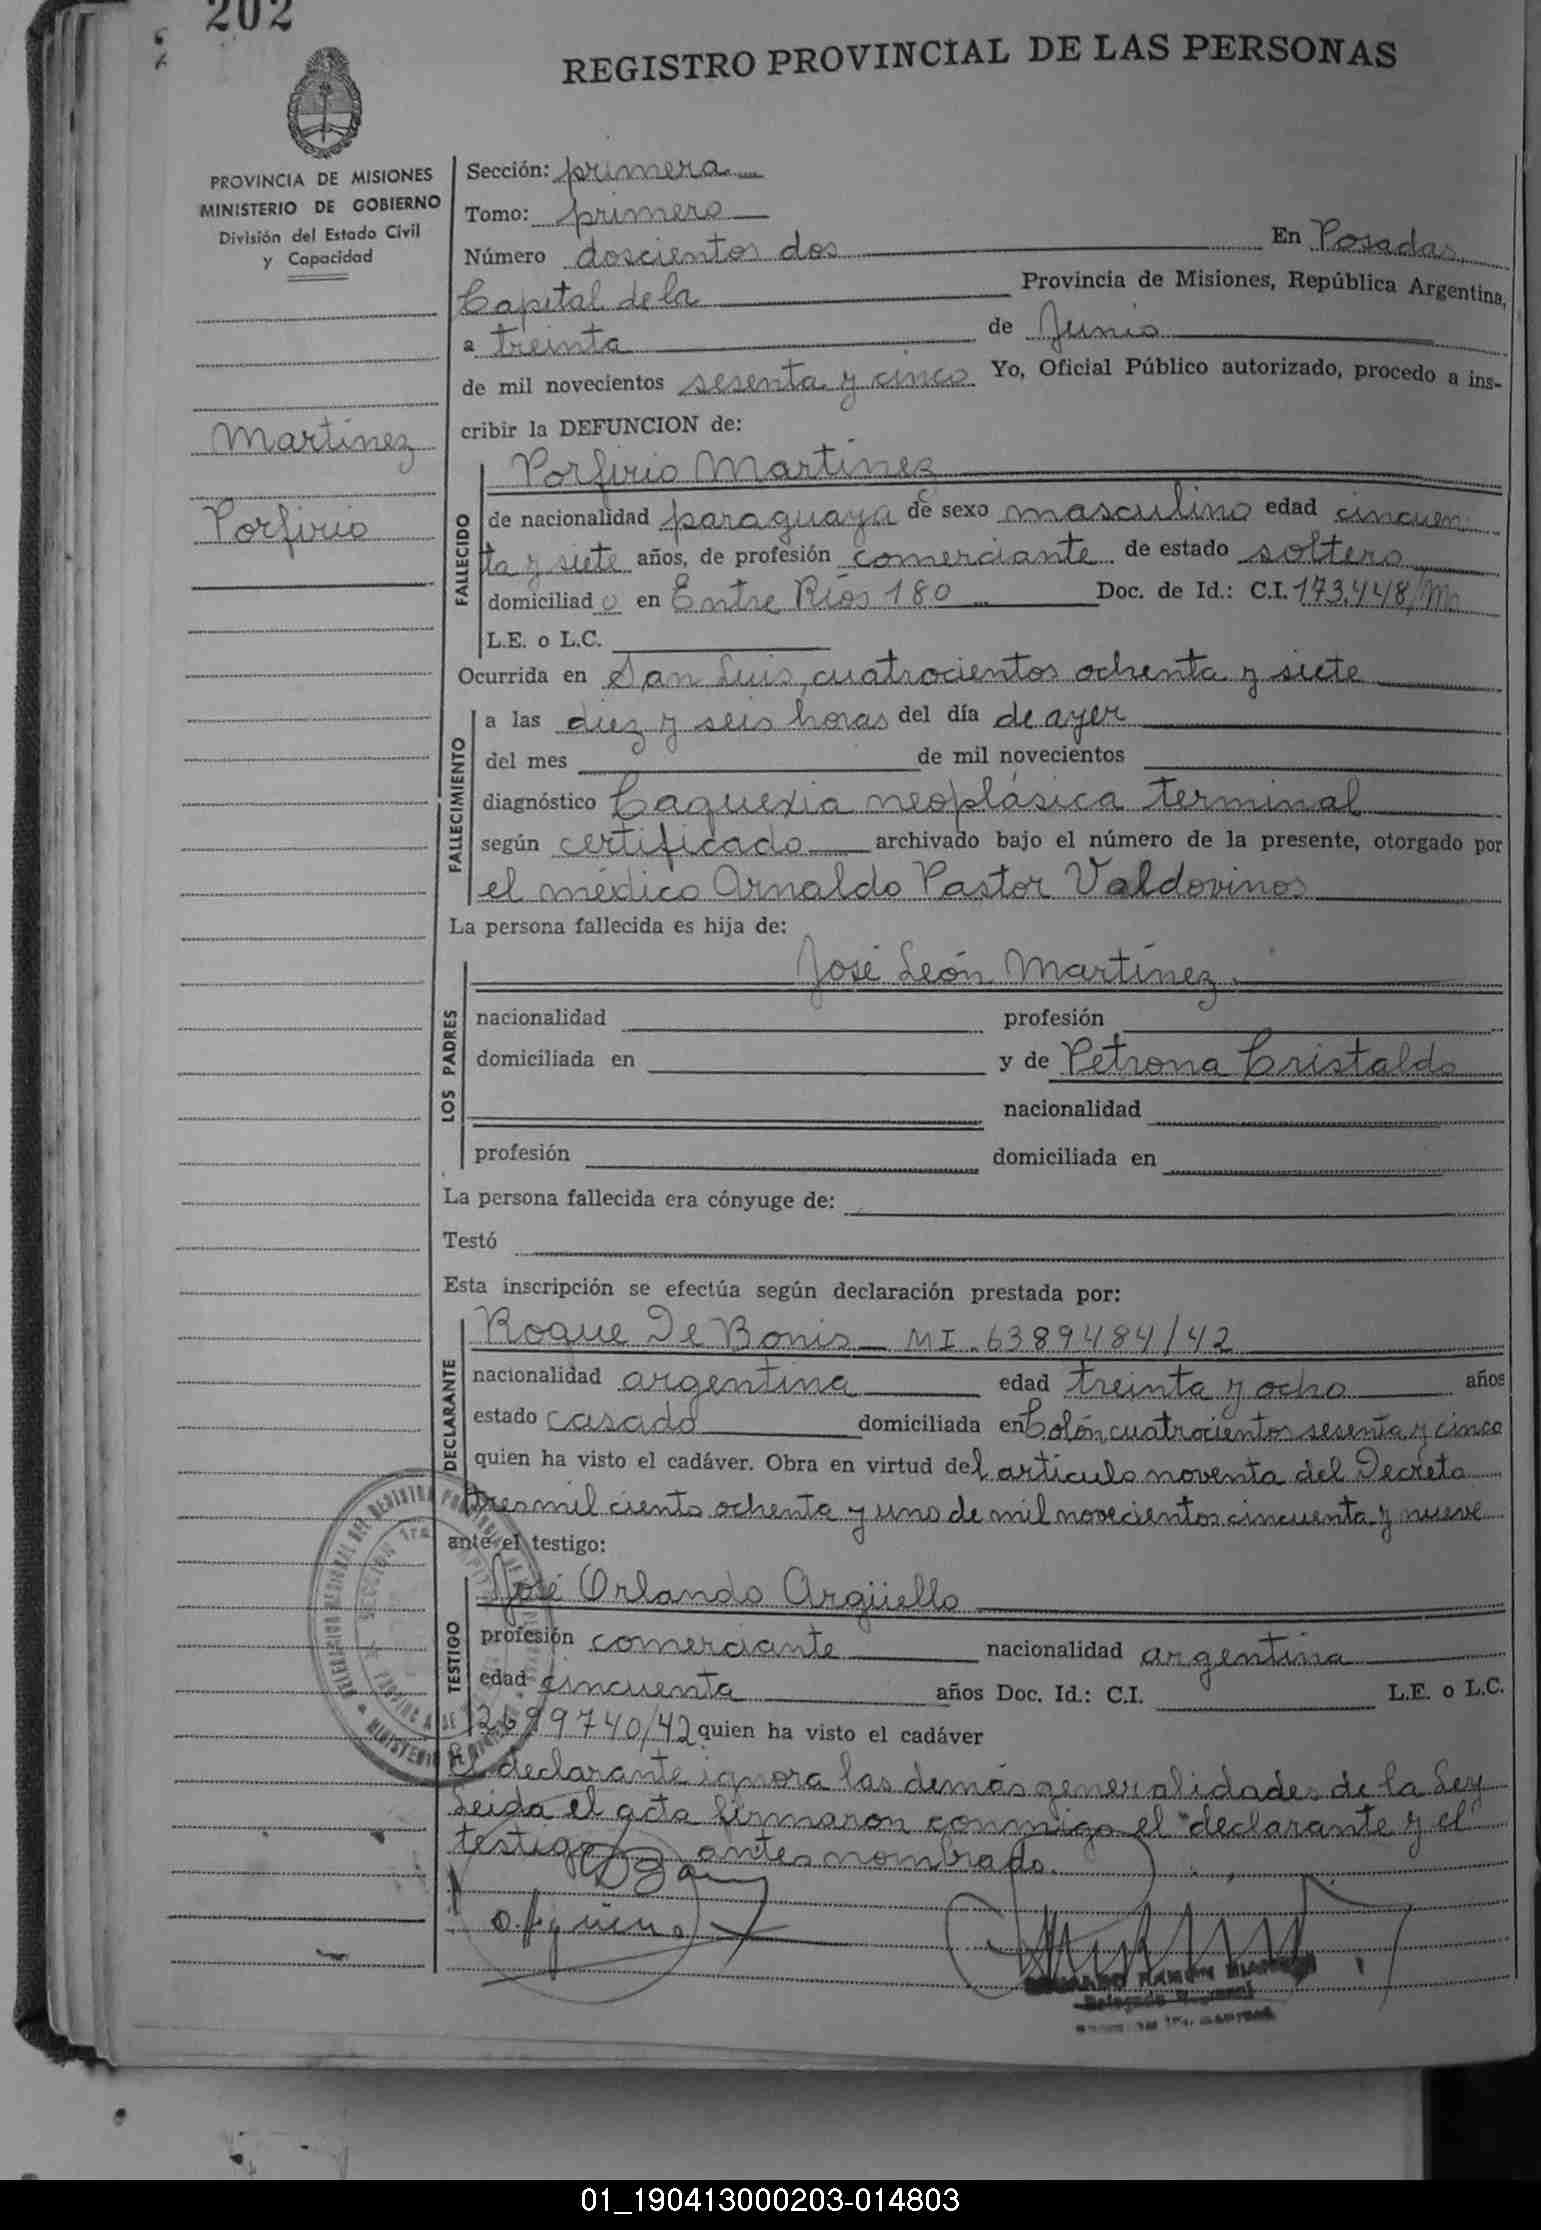 202
REGISTRO PROVINCIAL DE LAS PERSONAS
PROVINCIA DE MISIONES
MINISTERIO DE GOBIERNO
División del Estado Civil
y Capacidad
Martínez
Porfirio
Sección: primera
Tomo: primero
Número doscientos dos En Posadas
Capital de la Provincia de Misiones, República Argentina,
a treinta de Junio
de mil novecientos sesenta y cinco Yo, Oficial Público autorizado, procedo a ins-
cribir la DEFUNCION de:
FALLECIDO
Porfirio Martínez
de nacionalidad paraguaya de sexo masculino edad cincuen
ta y siete años, de profesión comerciante de estado soltero
domiciliado en Entre Ríos 180 Doc. de Id.: C.I. 173.448/M
L.E. o L.C.
Ocurrida en San Luis, cuatrocientos ochenta y siete
FALLECIMIENTO
a las diez y seis horas del día de ayer
del mes de mil novecientos
diagnóstico Caquexia neoplásica terminal
según certificado archivado bajo el número de la presente, otorgado por
el médico Arnaldo Pastor Valdovinos
La persona fallecida es hija de:
LOS PADRES
José León Martínez
nacionalidad profesión
domiciliada en y de Petrona Cristaldo
nacionalidad
profesión domiciliada en
La persona fallecida era cónyuge de:
Testó
Esta inscripción se efectúa según declaración prestada por:
DECLARANTE
Roque De Bonis MI. 6389484/42
nacionalidad argentina edad treinta y ocho años
estado casado domiciliada en Colón, cuatrocientos sesenta y cinco
quien ha visto el cadáver. Obra en virtud del artículo noventa del Decreto
tres mil ciento ochenta y uno de mil novecientos cincuenta y nueve
ante el testigo:
TESTIGO
José Orlando Argüello
profesión comerciante nacionalidad argentina
edad cincuenta años Doc. Id.: C.I. L.E. o L.C.
2699740/42 quien ha visto el cadáver
El declarante ignora las demás generalidades de la Ley
Leída el acta firmaron conmigo el declarante y el
testigo antes nombrado.
RAMON
Delegado
01_190413000203-014803